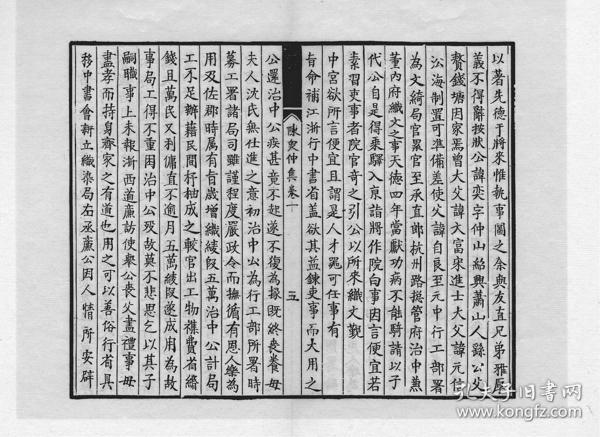 以著先德于將來惟執事圖之余與友直兄弟雅厚
義不得辭按狀公諱奕字仲山紹興蕭山人縣公父
贅錢塘因家焉曾大父諱文富宋進士大父諱元信
沿海制置司準備差使父諱自良至元中行工部署
為文綺局官累官至承直郎杭州路提管府治中兼
董內府織文之事天德四年當獻功病不能騎請以子
代公自是得乗驛入京詣將作院白事因言便宜若
素習吏事者院官奇之引公以所來織文覲
中宮欲所言便宜且謂是人才冕可任事有
旨命補江浙行中書省蓋欲其益鍊吏事而大用之
陳衆仲集卷十
五
公還治中公疾甚竟不起遂不復為掾既終喪養毋
夫人沈氏無仕進之意初治中公為行工部所署時
募工署諸局司雖謹程度嚴政令而撫循有恩人樂為
用及佐郡時厲有旨歲增織綾叚五萬治中公計局
工不足辦藉民間杼柚成之較官出工物襍費省緡
錢且萬民又利傭直不逾月五萬綾叚遂成用為故
事局工得不重困治中公殁故莫不悲思乞以其子
嗣職事上未報浙西道廉訪使舉公喪父盡禮事毋
盡孝而持身齊家之有道也用之可以善俗行省具
移中書會新立織染局右丞廉公因人情所安辟
孔夫子旧书网
www.kongfz.com